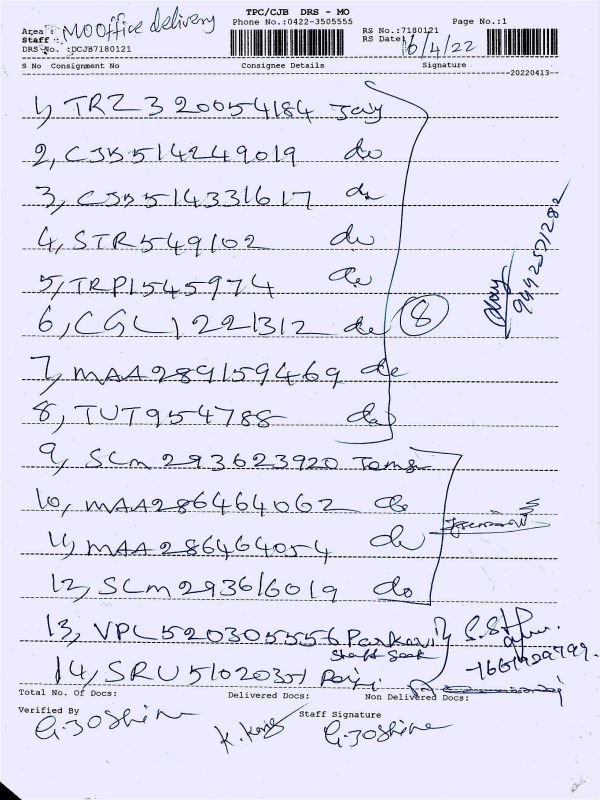 TPC/CJB DRS - MO
Area : MO Office delivery Phone No.:0422-3505555 RS No.:7180121 Page No.:1
Staff : RS Date: 16/4/22
DRS No. :DCJB7180121
S No Consignment No Consignee Details Signature
--20220413--
1, TRZ 320054184 Jay
2, CJB514249019 do
3, CJB514331617 do
4, STR549102 do
5, TRP1545974 do
6, CGL1221312 do 8
9442571282
7, MAA289159469 do
8, TUT954788 do
9, SCM 293623920
10, MAA286464062 do
11, MAA286464054 do
12, SCM293616019 do
13, VPL520305556
14, SRU5102035
Total No. Of Docs: Delivered Docs: Non Delivered Docs:
Verified By Staff Signature
G. Joshine G. Joshine